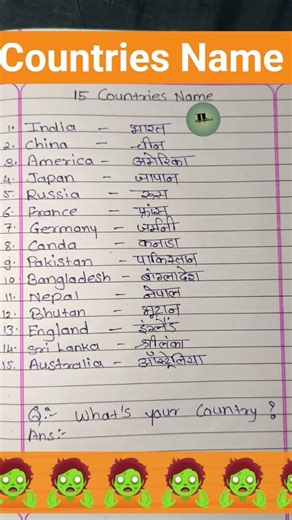 Countries Name
15 Countries Name
1. India - भारत
2. China - चीन
3. America - अमेरिका
4. Japan - जापान
5. Russia - रूस
6. France - फ्रांस
7. Germany - जर्मनी
8. Canda - कनाडा
9. Pakistan - पाकिस्तान
10. Bangladesh - बांग्लादेश
11. Nepal - नेपाल
12. Bhutan - भूटान
13. England - इंग्लैंड
14. Sri Lanka - श्रीलंका
15. Australia - ऑस्ट्रेलिया
Q:- What's your Country ?
Ans:-